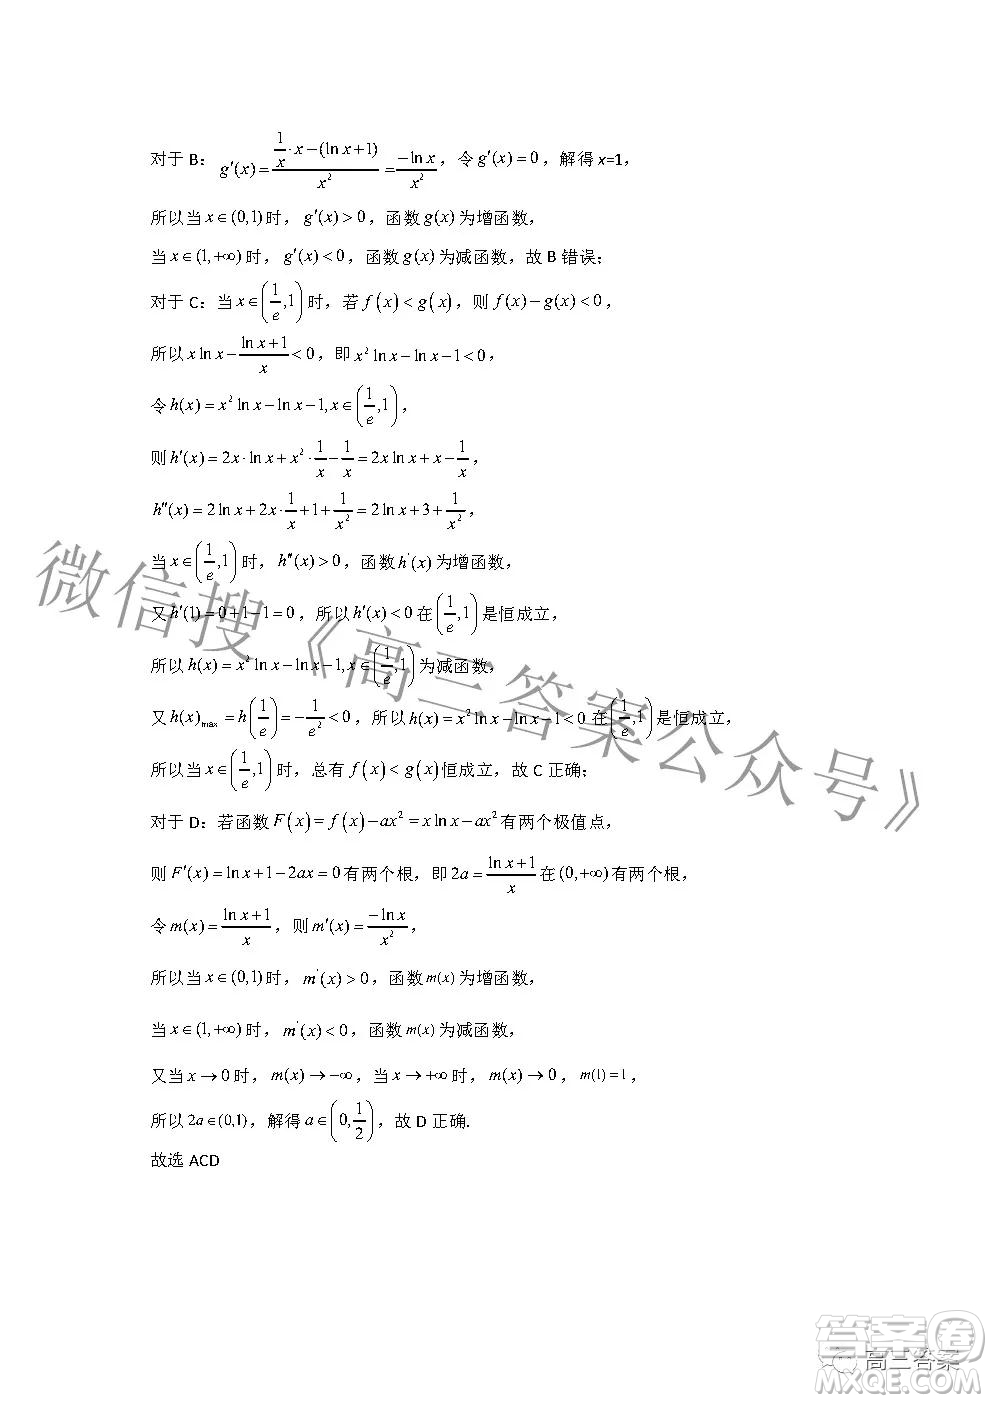 对于 B：g′(x)=(1/x·x−(ln x+1))/x²=−ln x/x²，令 g′(x)=0，解得 x=1，
所以当 x∈(0,1) 时，g′(x)>0，函数 g(x) 为增函数，
当 x∈(1,+∞) 时，g′(x)<0，函数 g(x) 为减函数，故 B 错误；
对于 C：当 x∈(1/e,1) 时，若 f(x)<g(x)，则 f(x)−g(x)<0，
所以 x ln x−(ln x+1)/x<0，即 x² ln x−ln x−1<0，
令 h(x)=x² ln x−ln x−1,x∈(1/e,1)，
则 h′(x)=2x·ln x+x²·1/x−1/x=2x ln x+x−1/x，
h″(x)=2 ln x+2x·1/x+1+1/x²=2 ln x+3+1/x²，
当 x∈(1/e,1) 时，h″(x)>0，函数 h′(x) 为增函数，
又 h′(1)=0+1−1=0，所以 h′(x)<0 在 (1/e,1) 是恒成立，
所以 h(x)=x² ln x−ln x−1,x∈(1/e,1) 为减函数，
又 h(x)max=h(1/e)=−1/e²<0，所以 h(x)=x² ln x−ln x−1<0 在 (1/e,1) 是恒成立，
所以当 x∈(1/e,1) 时，总有 f(x)<g(x) 恒成立，故 C 正确；
对于 D：若函数 F(x)=f(x)−ax²=x ln x−ax² 有两个极值点，
则 F′(x)=ln x+1−2ax=0 有两个根，即 2a=(ln x+1)/x 在 (0,+∞) 有两个根，
令 m(x)=(ln x+1)/x，则 m′(x)=−ln x/x²，
所以当 x∈(0,1) 时，m′(x)>0，函数 m(x) 为增函数，
当 x∈(1,+∞) 时，m′(x)<0，函数 m(x) 为减函数，
又当 x→0 时，m(x)→−∞，当 x→+∞ 时，m(x)→0，m(1)=1，
所以 2a∈(0,1)，解得 a∈(0,1/2)，故 D 正确.
故选 ACD
微信搜《高三答案公众号》
答案圈
高三答案
MXQE.COM